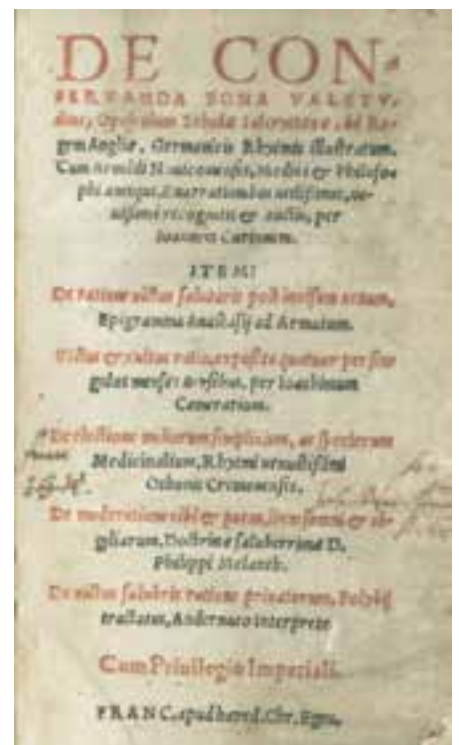 DE CON-
SERVANDA BONA VALETV-
dine, Opusculum Scholæ Salernitanæ, ad Re-
gem Angliæ, Germanicis Rhytmis illustratum,
Cum Arnoldi Nouicomensis, Medici & Philoso-
phi antiqui, Enarrationibus utilissimis, no-
uissimè recognitis & auctis, per
Ioannem Curionem.
ITEM:
De ratione uictus salutaris post incisam uenam,
Epigramma ad
Victus & cultus ratio, exposita quatuor per sin-
gulos menses uersibus, per Ioachimum
Camerarium.
De electione meliorum simplicium, ac specierum
Medicinalium, Rhytmi uenustissimi
Othonis Cremonensis.
De moderatione cibi & potus, item somni & ui-
giliarum, Doctrinæ saluberrimæ D.
Philippi Melanth.
De uictus salubris ratione priuatorum, Polybij
tractatus, Andernaco interprete
Cum Priuilegio Imperiali.
FRANC. apud hæred. Chr. Egen.